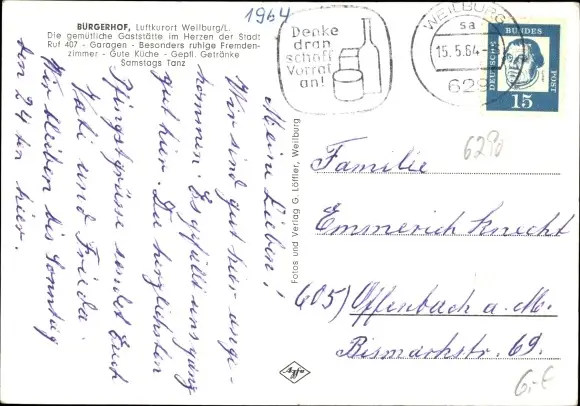 BÜRGERHOF, Luftkurort Weilburg/L.
Die gemütliche Gaststätte im Herzen der Stadt
Ruf 407 - Garagen - Besonders ruhige Fremden-
zimmer - Gute Küche - Gepfl. Getränke
Samstags Tanz
1964
Denke
dran
schaff
Vorrat
an!
WEILBURG
sa
15.5.64
629
DEUTSCHE
BUNDES
POST
15
6290
Meine Lieben!
Wir sind gut hier ange-
kommen. Es gefällt uns ganz
gut hier. Die herzlichsten
Pfingstgrüsse sendet Euch
Kati und Frieda.
Wir bleiben bis Sonntag
den 24ten hier.
Fotos und Verlag G. Löffler, Weilburg
Agfa
Familie
Emmerich Knecht
605) Offenbach a. M.
Bismarckstr. 69.
6.-€